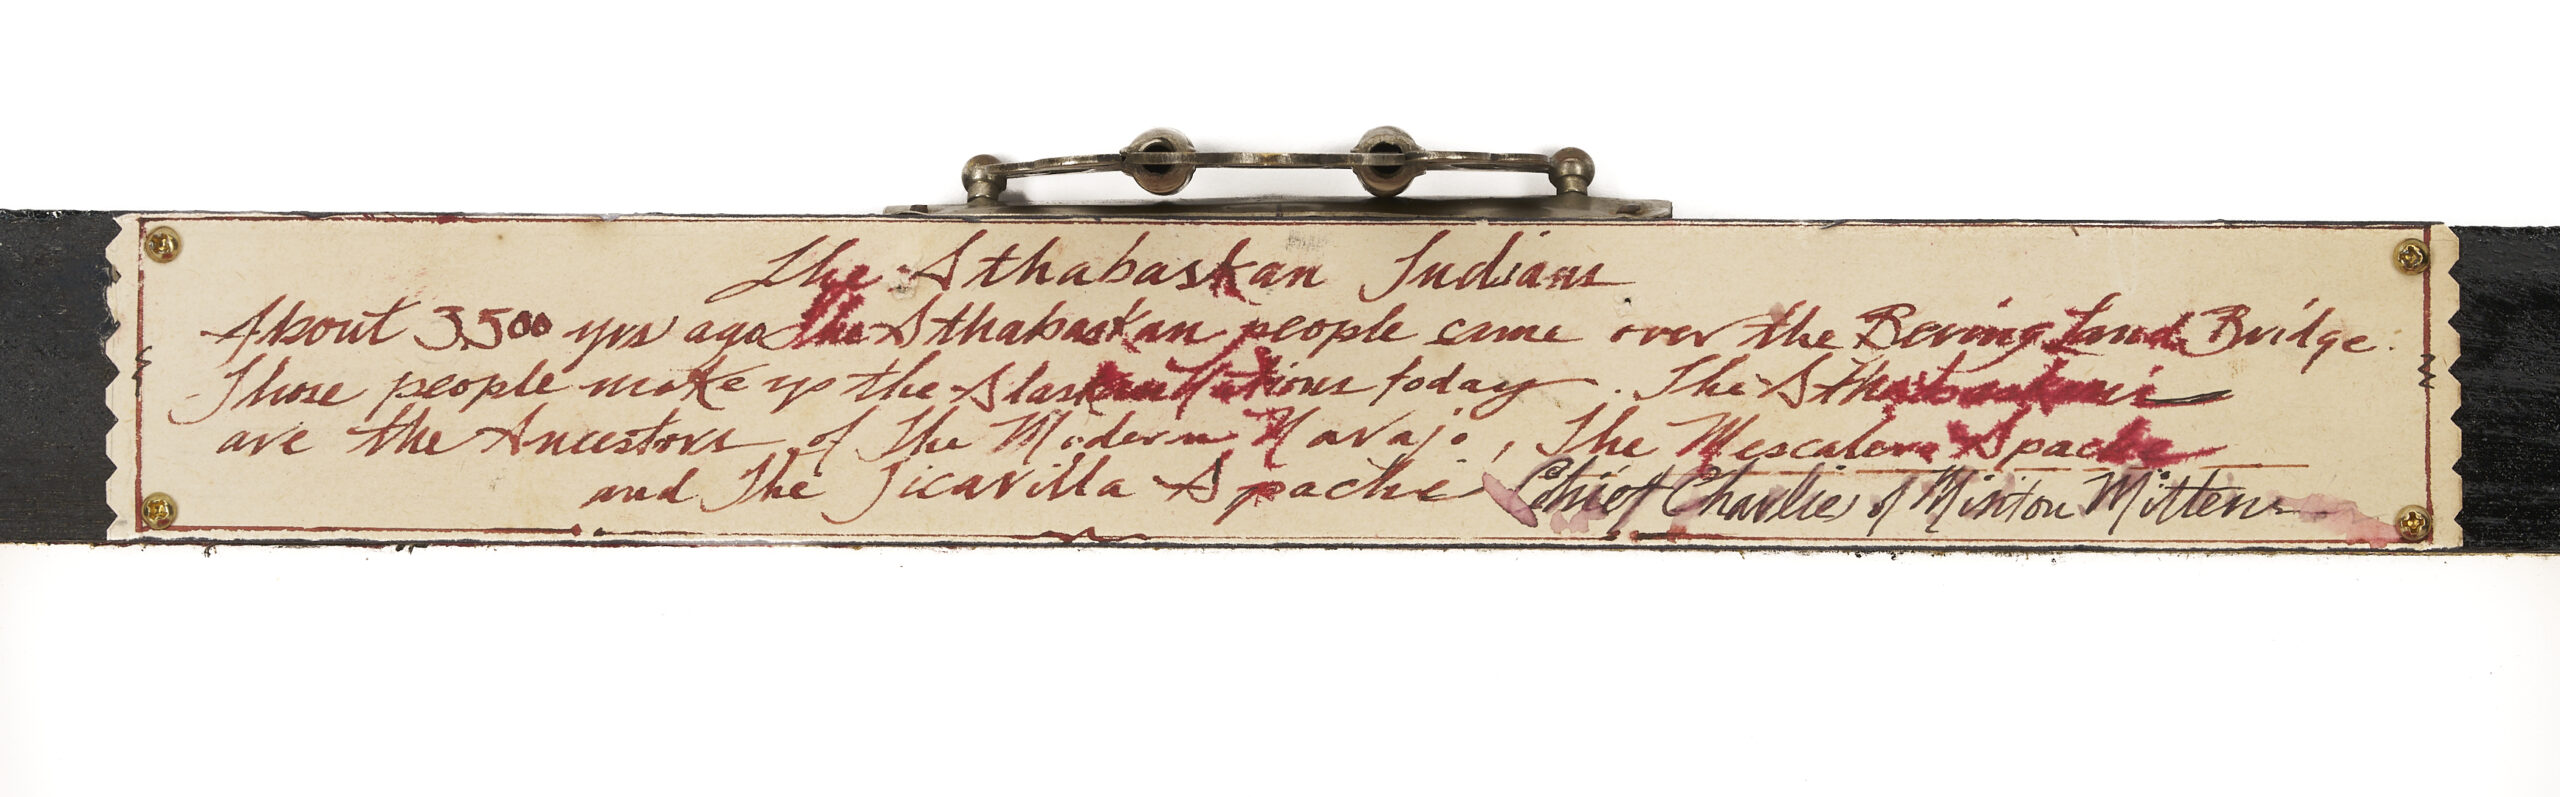 The Athabaskan Indians
About 3500 yrs ago The Athabaskan people came over the Bering Land Bridge.
Those people make up the Alaskan Nations today. The Athabaskans
are the Ancestors of The Modern Navajo, The Mescalero Apache
and The Jicarilla Apache Chief Charlie of Minton Mittens